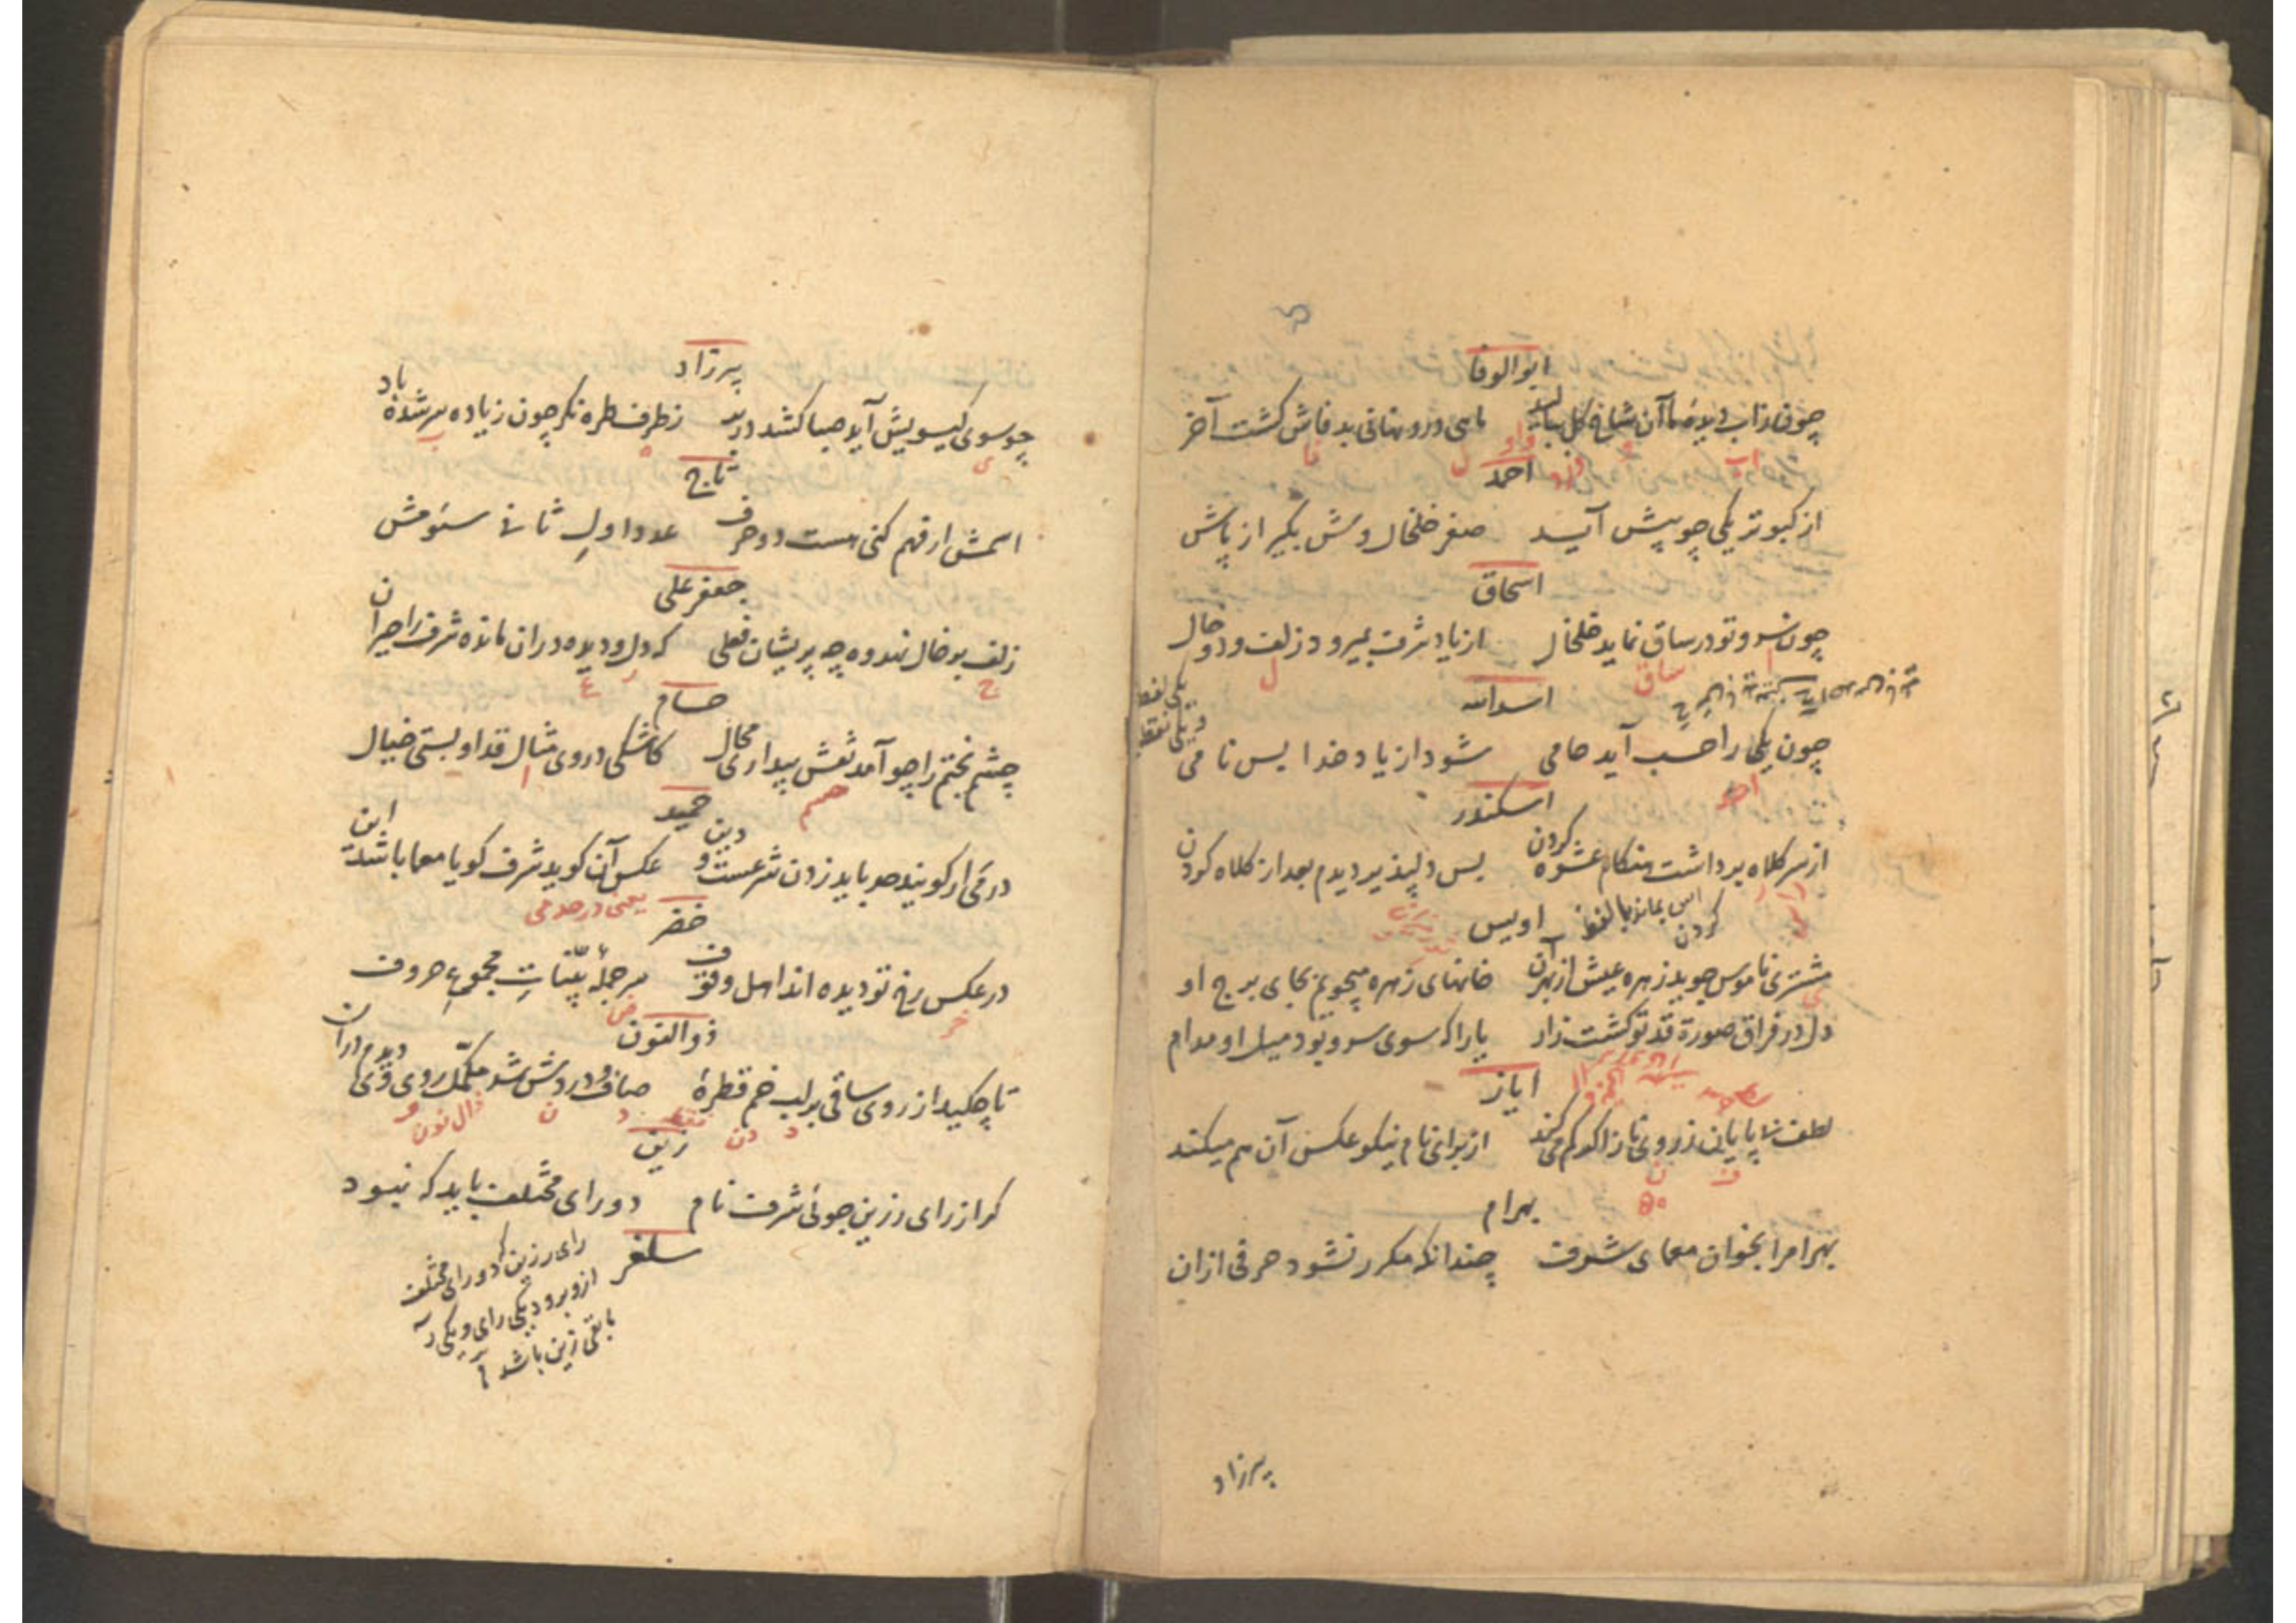 ابوالوفا
چو فتاد از آب دیده ما آن شاخ گل ببالید ماهی در و نهانی بد فاش کشت آخر
احمد
از کبوتر یکی چو پیش آید صفر خلخال وش بکیر از پاش
اسحاق
چون سرو تو در ساق نماید خلخال از یاد شرف نمیرود زلف و دو خال
اسدالله
چون یکی را حسب آید حامی شود از یاد خدا پس نامی
یکی لفظ
و یکی نقطه
اسکندر
از سر کلاه برداشت هنکام عشوه کردن بس دلپذیر دیدم بعد از کلاه کردن
اویس
مشتری ناموس جوید زهره عیش از بهر آن خانهای زهره میجویم بجای برج او
دل در فراق صورة قد تو کشت زار یارا که سوی سرو بود میل او مدام
ایاز
لطف بی پایان ز روی ناز اکر کم می کند از برای نام نیکو عکس آن هم میکند
بهرام
بهرامرا بخوان معمای شرف چندانکه مکرر نشود حرفی ازان
پیرزاد
پیرزاد
چو سوی کیسویش آید صبا کشد در بر ز طرف طره نکر چون زیاده سر شده باد
تاج
اسمش ار فهم کنی هست دو حرف عدد اول ثانی سئومش
جعفر علی
زلف بر خال نهد وه چه پریشان فعلی که دل و دیده دران مانده شرف را حیران
حسام
چشم بختم را چو آمد نقش بیداری محال کاشکی در وی مثال قد او بستی خیال
حمید
در می ار کویند حد باید زدن شرعست و دین عکس آن کوید شرف کویا معما باشد این
یعنی در حد می
خضر
در عکس رخ تو دیده اند اهل وقوف سر جمله بیّنات مجموع حروف
ذوالنون
تا چکید از روی ساقی بر لب خم قطرهٔ صاف و دردش شد مکمّل روی وی دیدم دران
زین
کر از رای رزین جوئی شرف نام دو رای مختلف باید که نبود
رای رزین که دو رای مختلف
ازو برود یکی رای و یکی ر
باقی زین باشد
سلغر